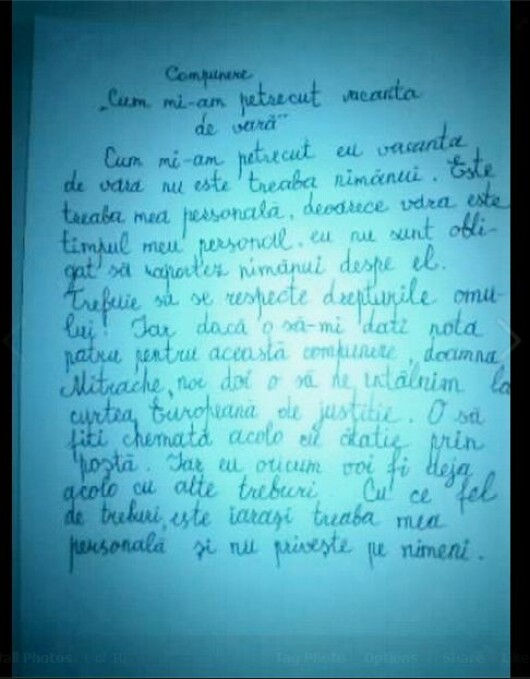 Compunere
„Cum mi-am petrecut vacanta
de vară"
Cum mi-am petrecut eu vacanta
de vara nu este treaba nimănui. Este
treaba mea personală, deoarece vara este
timpul meu personal, eu nu sunt obli-
gat să raportez nimănui despe el.
Trebuie să se respecte drepturile omu-
lui! Iar dacă o să-mi dati nota
patru pentru această compunere, doamna
Mitrache, noi doi o să ne întâlnim la
curtea Europeană de justitie. O să
fiti chemată acolo cu citatie prin
poștă. Iar eu oricum voi fi deja
acolo cu alte treburi Cu ce fel
de treburi, este iarași treaba mea
personală și nu privește pe nimeni.
Tag Photo Options Share